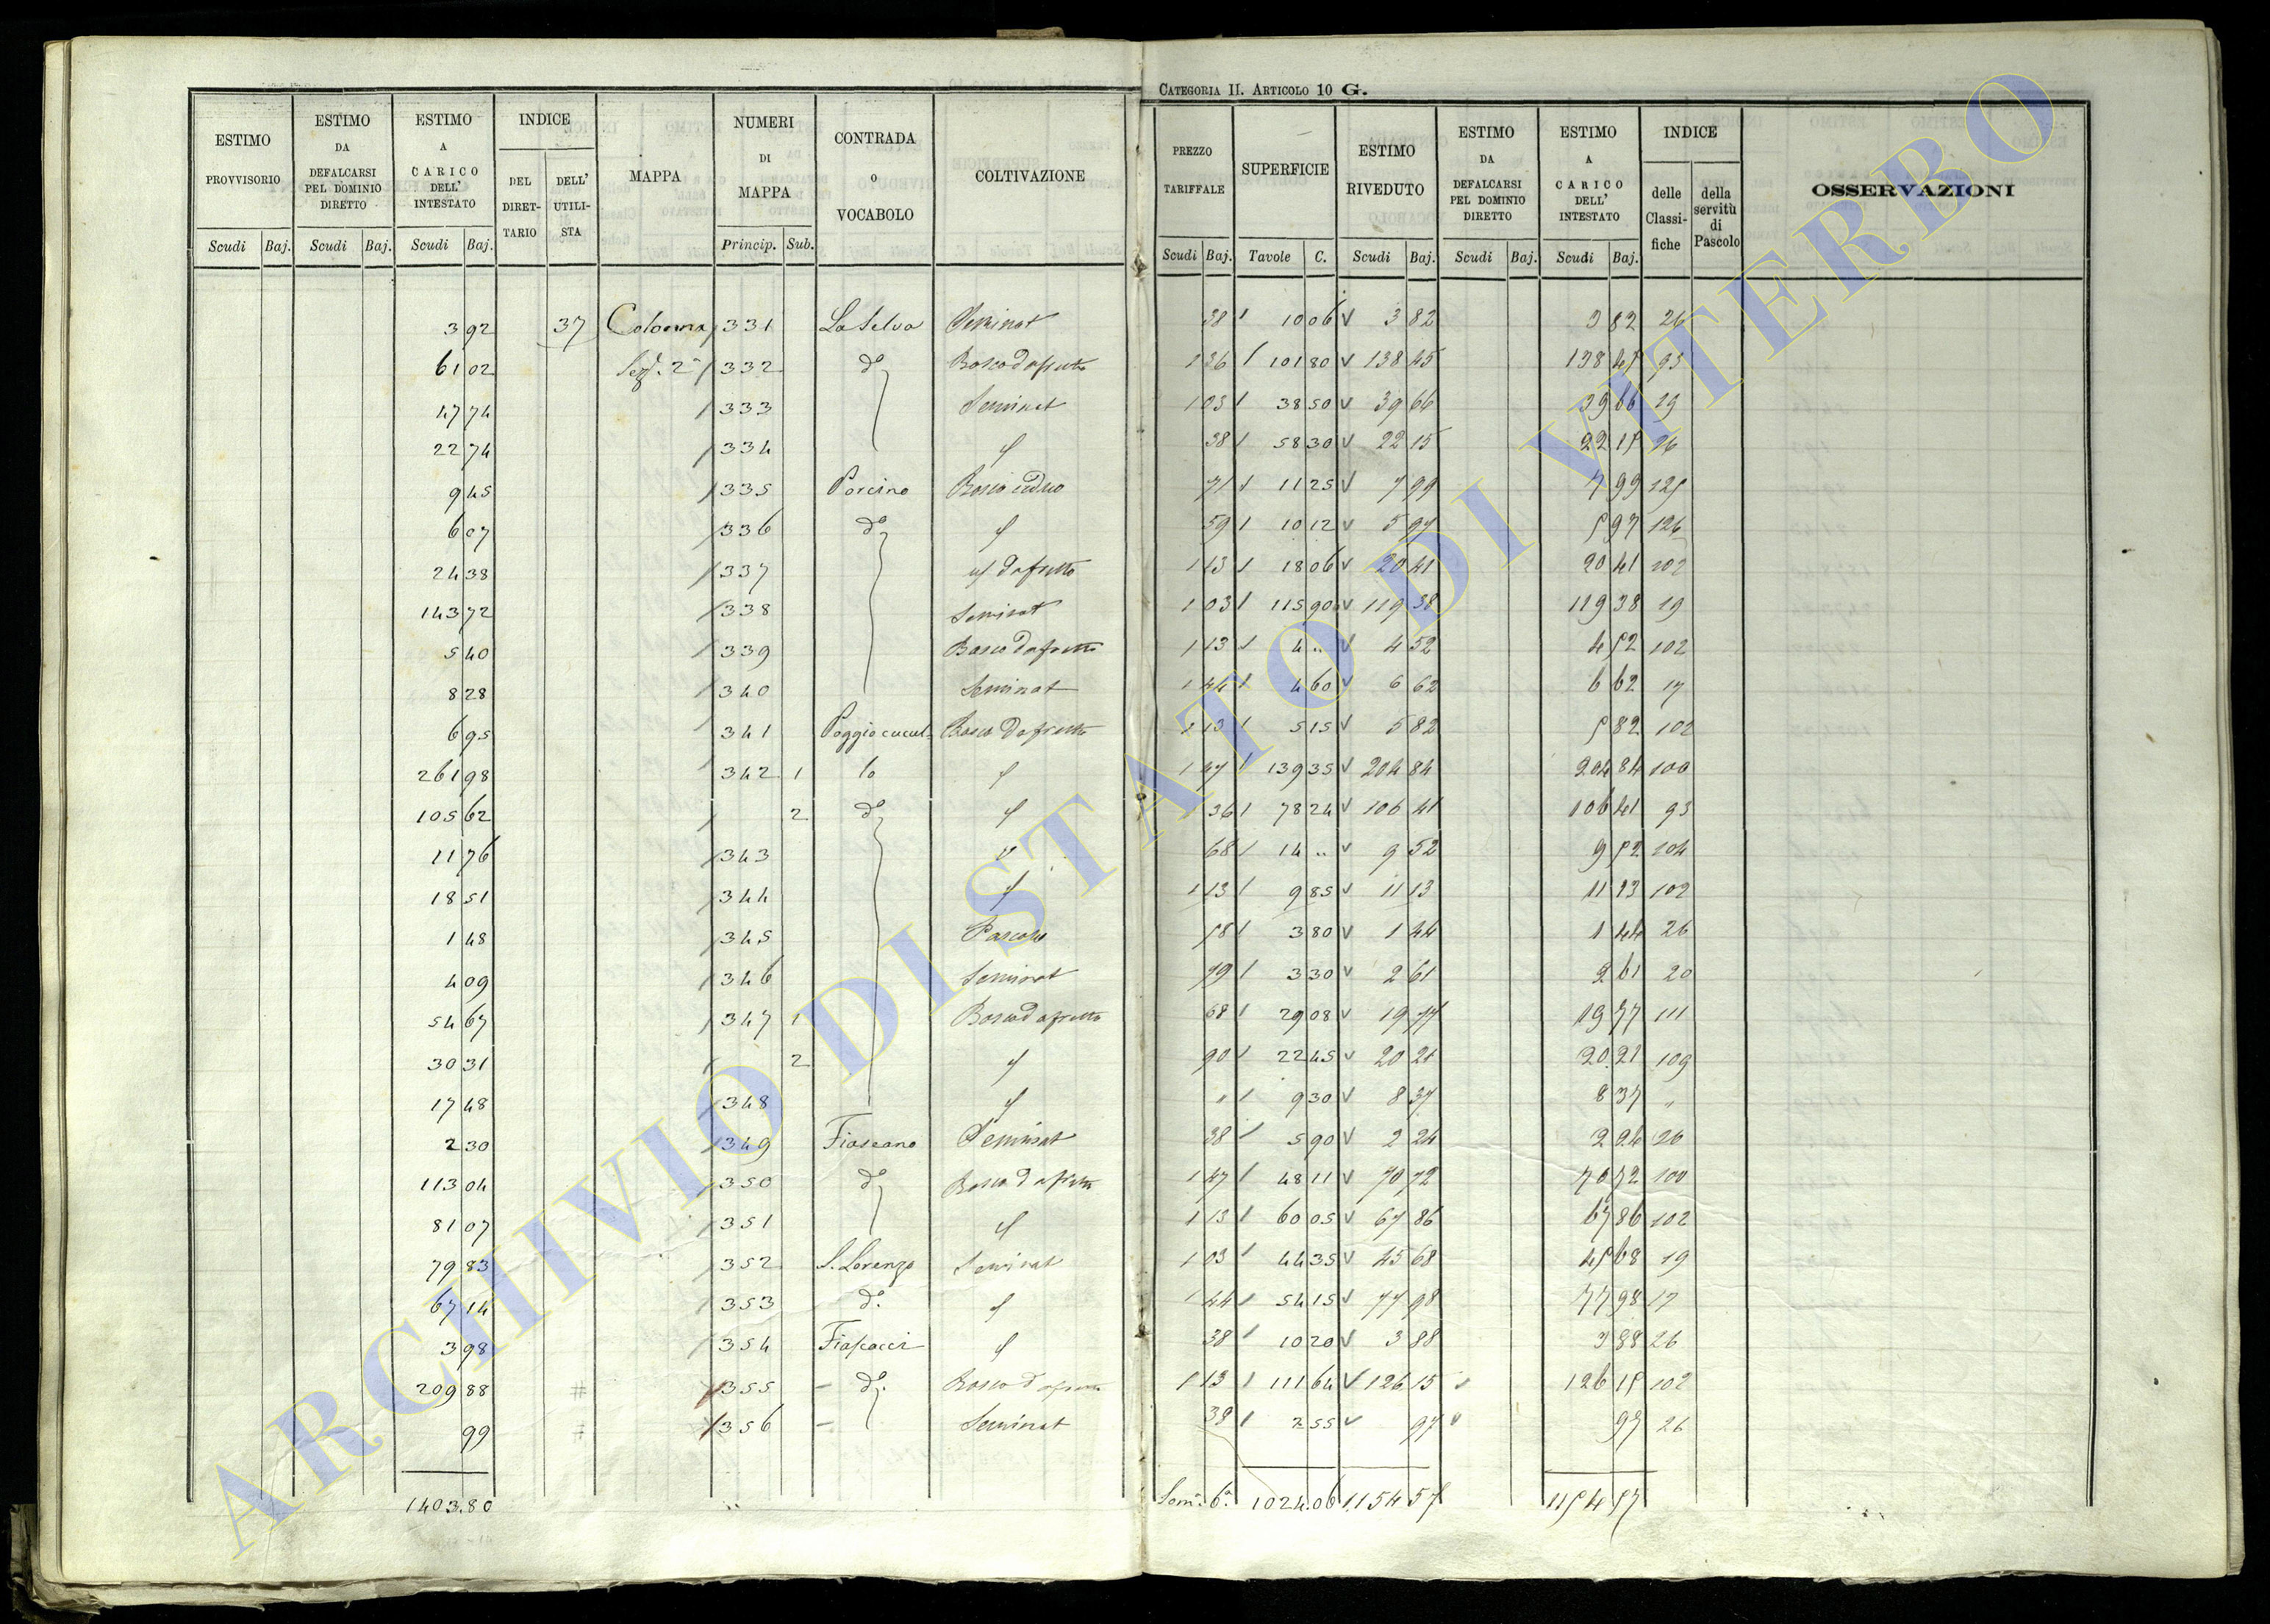 CATEGORIA II. ARTICOLO 10 G.
ESTIMO PROVVISORIO Scudi Baj.
ESTIMO DA DEFALCARSI PEL DOMINIO DIRETTO Scudi Baj.
ESTIMO A CARICO DELL' INTESTATO Scudi Baj.
INDICE DEL DIRET-TARIO DELL' UTILI-STA
MAPPA
NUMERI DI MAPPA Princip. Sub.
CONTRADA O VOCABOLO
COLTIVAZIONE
PREZZO TARIFFALE Scudi Baj.
SUPERFICIE Tavole C.
ESTIMO RIVEDUTO Scudi Baj.
ESTIMO DA DEFALCARSI PEL DOMINIO DIRETTO Scudi Baj.
ESTIMO A CARICO DELL' INTESTATO Scudi Baj.
INDICE delle Classi-fiche della servitù di Pascolo
OSSERVAZIONI
3 92 37 Colonna 331 La Selva Seminat 38 10 06 3 82 3 82 26
61 02 Sez. 2a 332 do Bosco da frutto 1 36 101 80 138 45 138 45 93
47 74 333 Seminat 1 03 38 50 39 66 39 66 19
22 74 334 38 58 30 22 15 22 15 26
9 45 335 Porcino Bosco ceduo 71 11 25 7 99 7 99 125
6 07 336 do 59 10 12 5 97 5 97 126
24 38 337 da frutto 1 13 18 06 20 41 20 41 102
143 72 338 Seminat 1 03 115 90 119 38 119 38 19
5 40 339 Bosco da frutto 1 13 4 .. 4 52 4 52 102
8 28 340 Seminat 1 44 4 60 6 62 6 62 17
6 95 341 Poggio cucul- Bosco da frutto 1 13 5 15 5 82 5 82 102
261 98 342 1 lo 1 47 139 35 204 84 204 84 100
105 62 2 do 1 36 78 24 106 41 106 41 93
11 76 343 68 14 .. 9 52 9 52 104
18 51 344 1 13 9 85 11 13 11 13 102
1 48 345 Pascolo 38 3 80 1 44 1 44 26
4 09 346 Seminat 79 3 30 2 61 2 61 20
54 67 347 1 Bosco da frutto 68 29 08 19 77 19 77 111
30 31 2 90 22 45 20 21 20 21 109
17 48 348 " 9 30 8 37 8 37 "
2 30 349 Fiascano Seminat 38 5 90 2 24 2 24 26
113 04 350 do Bosco da frutto 1 47 48 11 70 72 70 72 100
81 07 351 1 13 60 05 67 86 67 86 102
79 83 352 S. Lorenzo Seminat 1 03 44 35 45 68 45 68 19
67 14 353 do. 1 44 54 15 77 98 77 98 17
3 98 354 38 10 20 3 88 3 88 26
209 88 # 355 – do. Bosco da frutto 1 13 111 64 126 15 126 15 102
99 # 356 – Seminat 38 2 55 97 97 26
1403.80 Som. 6a. 1024.06 1154 57 1154 57
ARCHIVIO DI STATO DI VITERBO